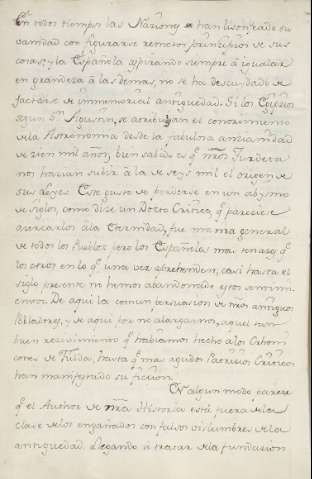 En todos tiempos las Naciones se han lisongeado su
vanidad con figurarse remotos principios de sus
cosas; y la Española aspirando siempre à igualar
en grandeza à las demas, no se ha descuidado de
jactarse de inmemorial antiguedad. Si los Egipcios
segun Sn. Agustin, se atribuían el conocimiento
de la Astronomia desde la fabulosa antiguedad
de cien mil años, bien sabido es q.e nros. Turdeta
nos hacian subir à la de seys mil el origen de
sus Leyes. Este gusto de perderse en un abysmo
de siglos, como dize un Docto Critico, q.e parecia
acercarlos ala Eternidad, fue mania general
de todos los Pueblos; pero los Españoles mas tenazes q.e
los otros en lo q.e una vez aprehenden, casi hasta el
siglo presente ni hemos abandonado estos
De aqui la comun persuasion de nros. antiguos
Pobladores, y de aqui por no alargarnos, aquel tan
buen recivimiento q.e habiamos hecho alos Chroni
cones de Fulda, hasta q.e mas agudos Criticos
han manifestado su ficcion.
En algun modo parece
q.e el Author de nra. Historia està fuera de la
clase de los engañados con falsos vislumbres de la
antiguedad. Llegando à tratar de la fundacion